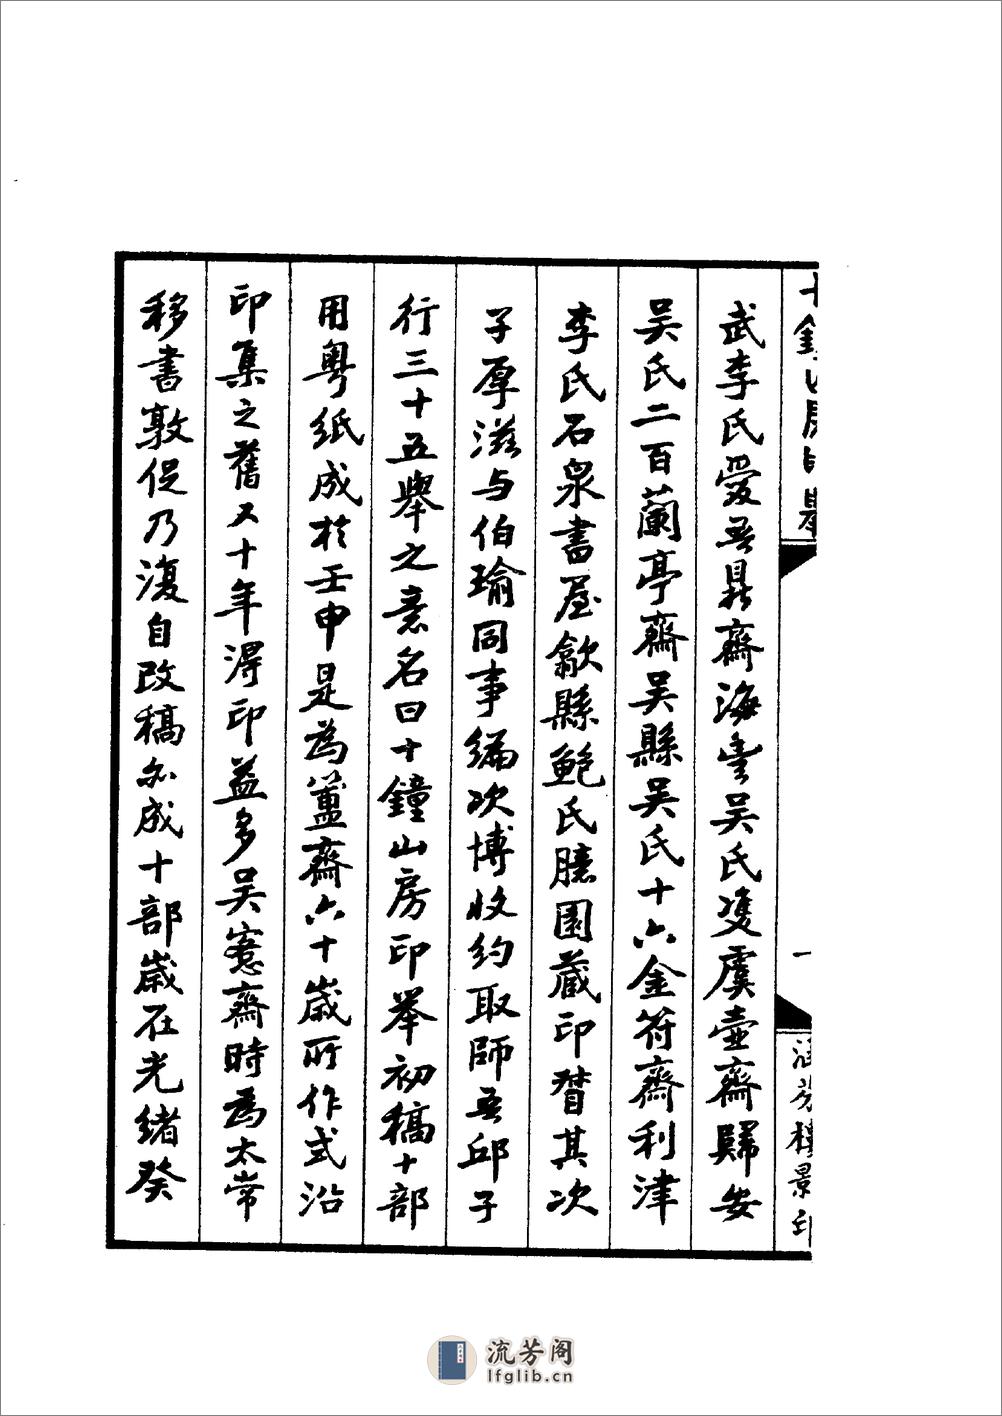 十鐘山房印舉
一
涵芬樓景印
武李氏愛吾鼎齋海豐吳氏雙虞壺齋歸安
吳氏二百蘭亭齋吳縣吳氏十六金符齋利津
李氏石泉書屋歙縣鮑氏臆園藏印朁其次
子厚滋与伯瑜同事編次博收約取師吾邱子
行三十五舉之意名曰十鐘山房印举初稿十部
用粤紙成於壬申是為簠齋六十歲所作式沿
印集之舊又十年淂印益多吴愙齋時為太常
移書敦促乃復自改稿亦成十部歲在光緒癸
流芳阁
lfglib.cn